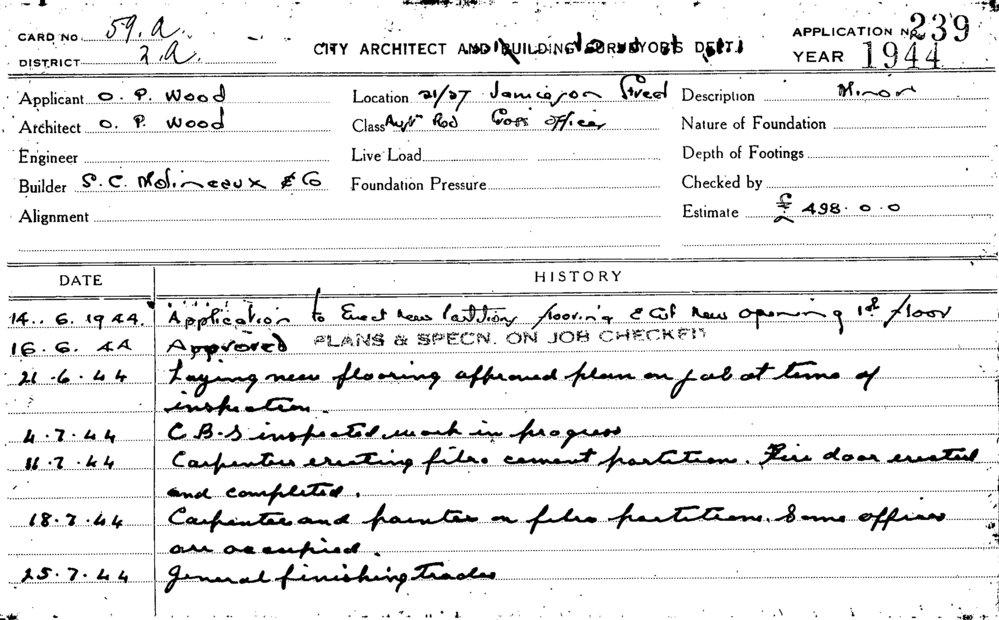 CARD No. 59.a
DISTRICT 2.a.
CITY ARCHITECT AND BUILDING SURVEYOR'S DEPT.
APPLICATION No. 239
YEAR 1944
Applicant O. P. Wood
Location 21/27 Jamieson Street
Description Minor
Architect O. P. Wood
Class Offices
Nature of Foundation
Engineer
Live Load
Depth of Footings
Builder S. C. Molineaux & Co
Foundation Pressure
Checked by
Alignment
Estimate £ 498. 0. 0
DATE HISTORY
14. 6. 1944. Application to Erect New Partitions flooring & Cut New opening 1st floor
16. 6. 44 Approved PLANS & SPECN. ON JOB CHECKED
21. 6. 44 Laying new flooring approved plan on job at time of
inspection.
4. 7. 44 C.B.S inspected work in progress
11. 7. 44 Carpenters erecting fibro cement partitions. Fire door erected
and completed.
18. 7. 44 Carpenter and painter on fibro partitions. Some offices
are occupied.
25. 7. 44 General finishing trades